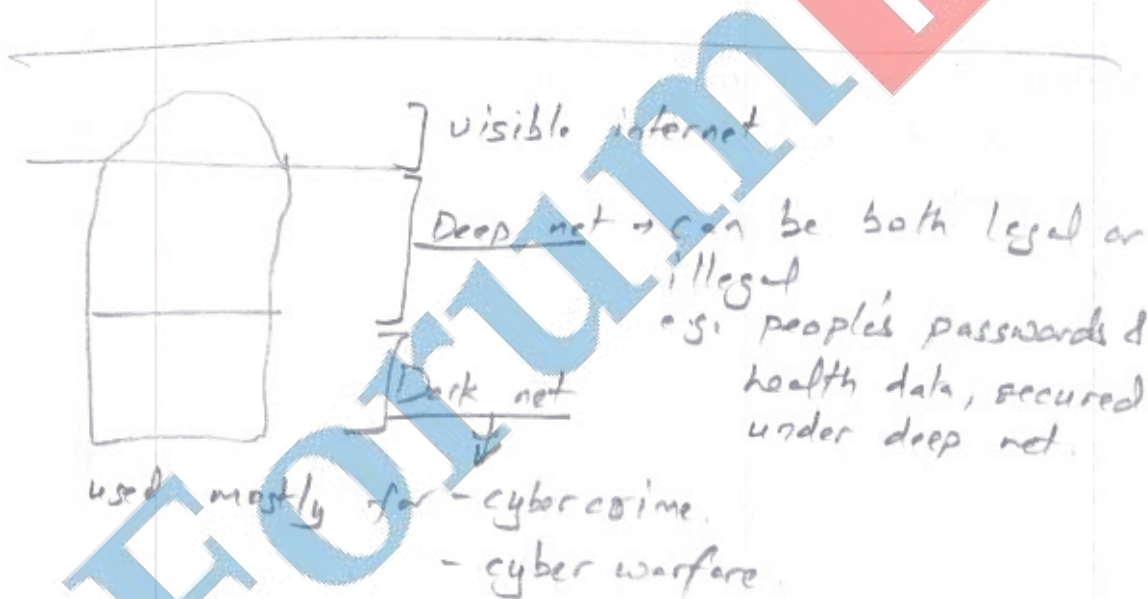 visible internet
Deep net → can be both legal or
illegal
e.g. people's passwords &
health data, secured
under deep net.
Dark net
used mostly for - cybercrime.
- cyber warfare
Forum